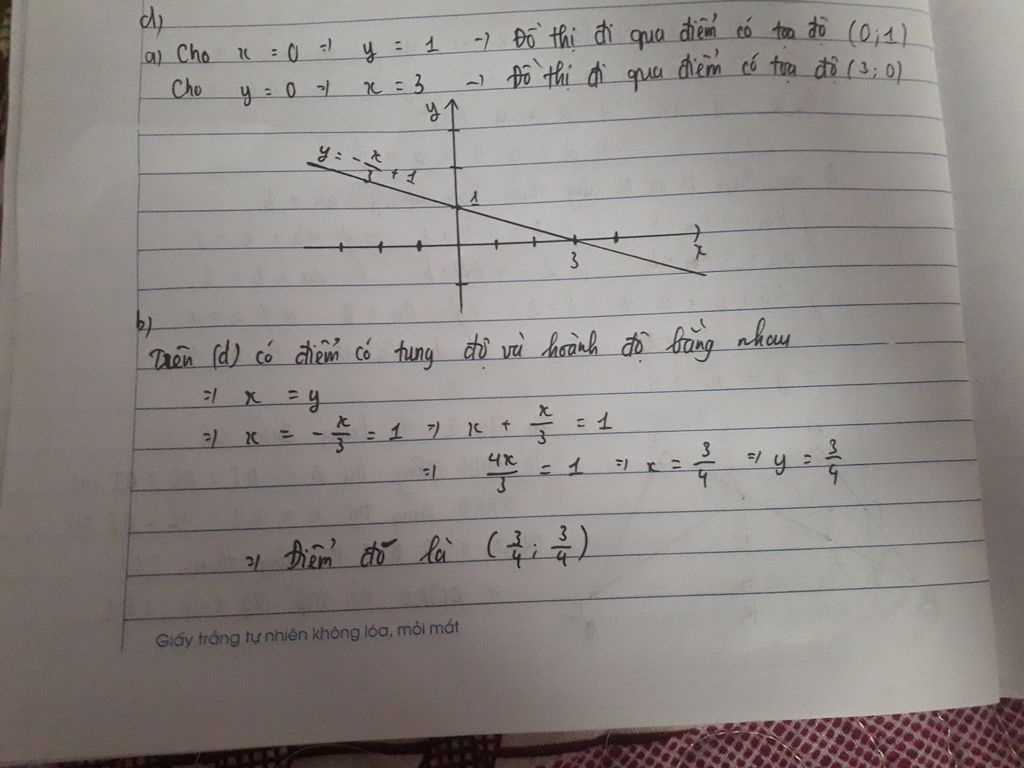 d)
a) Cho x = 0 => y = 1 -> Đồ thị đi qua điểm có tọa độ (0;1)
Cho y = 0 => x = 3 -> Đồ thị đi qua điểm có tọa độ (3;0)
y
y = -x/3 + 1
1
3
x
b)
Trên (d) có điểm có tung độ và hoành độ bằng nhau
=> x = y
=> x = -x/3 = 1 => x + x/3 = 1
=> 4x/3 = 1 => x = 3/4 => y = 3/4
=> Điểm đó là (3/4; 3/4)
Giấy trắng tự nhiên không lóa, mỏi mắt